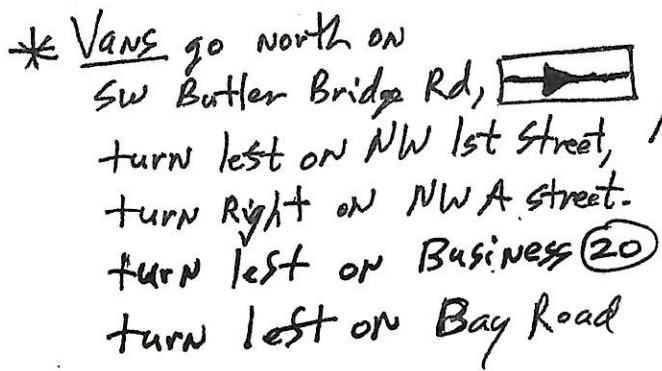 * Vans go north on
SW Butler Bridge Rd,
turn left on NW 1st street,
turn Right on NW A street.
turn left on Business 20
turn left on Bay Road